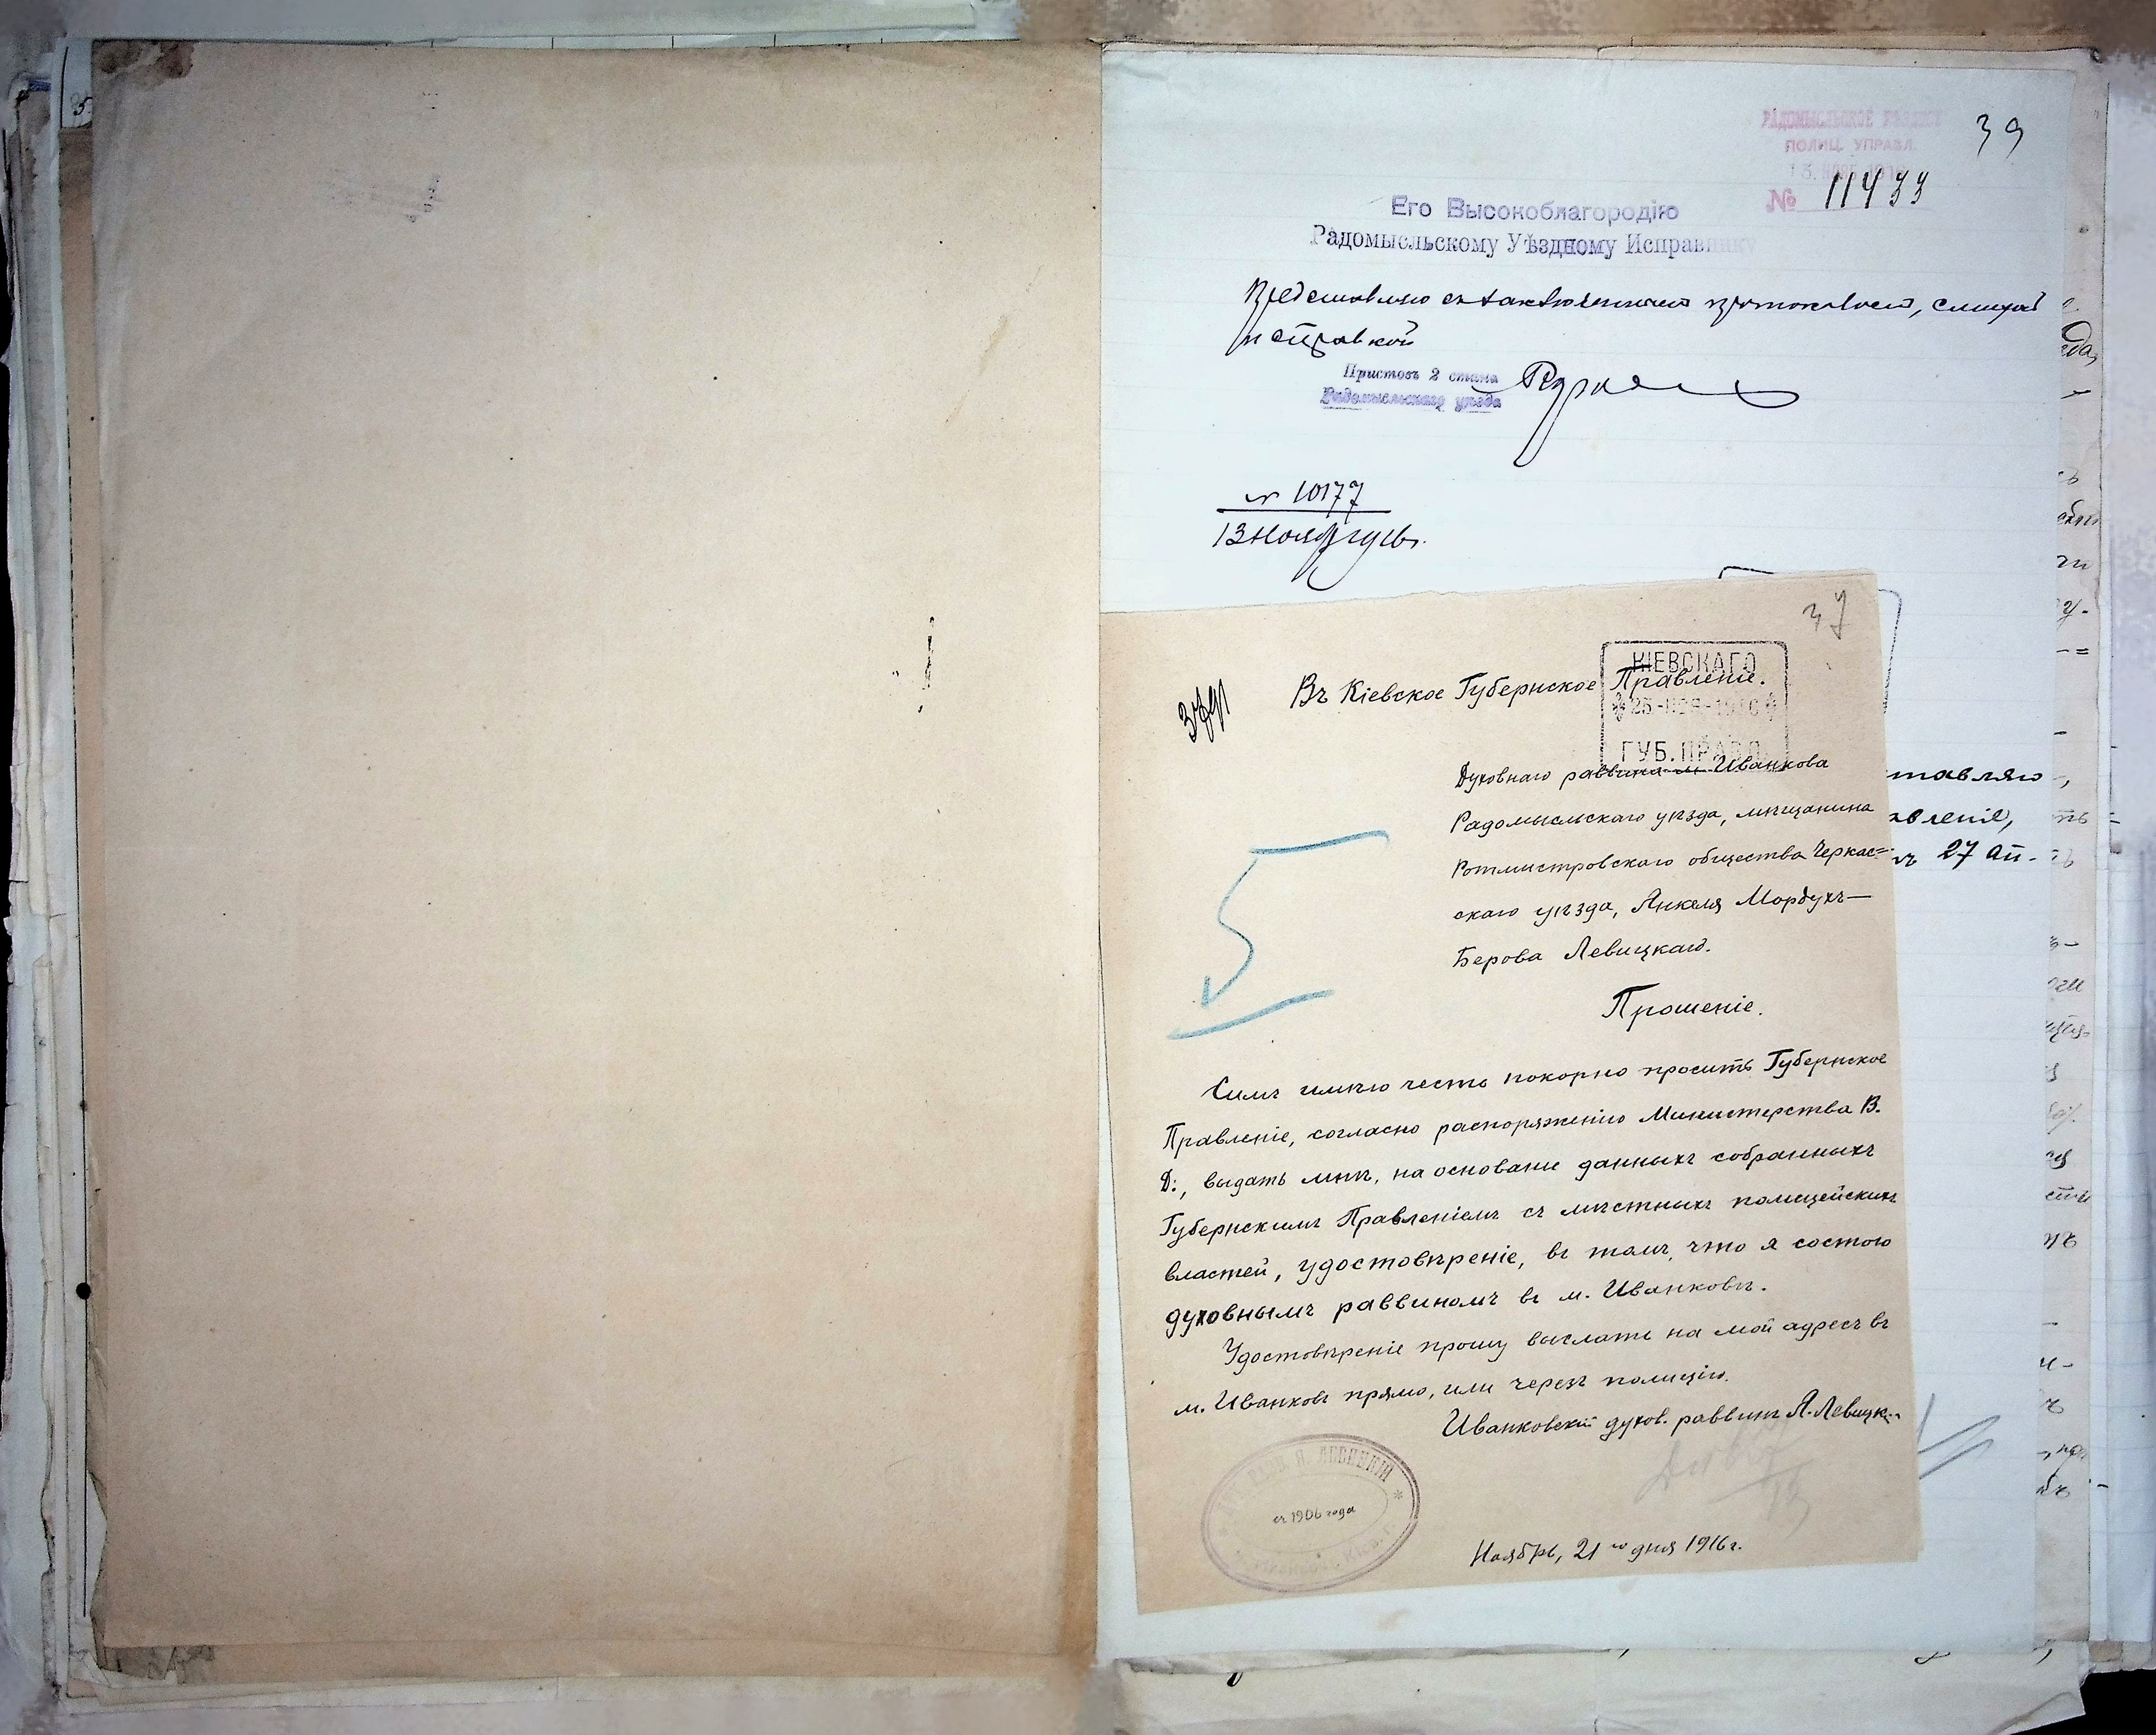 39
РАДОМЫСЛЬСКОЕ УѢЗДНОЕ
ПОЛИЦ. УПРАВЛ.
№ 11433
Его Высокоблагородію
Радомысльскому Уѣздному Исправнику
Представляю съ заключеніемъ протоколомъ,
и справкой
Приставъ 2 стана
Радомысльскаго уѣзда
№ 10177
13 ноября 1916 г.
37
Въ Кіевское Губернское Правленіе.
КІЕВСКАГО
25-НОЯ-1916
ГУБ. ПРАВЛ.
Духовнаго раввина м. Иванкова
Радомысльскаго уѣзда, мѣщанина
Ротмистровскаго общества Черкас=
скаго уѣзда, Янкеля Мордухъ—
Берова Левицкаго.
ставляю,
авленіе,
27 ап-
Прошеніе.
Симъ имѣю честь покорно просить Губернское
Правленіе, согласно распоряженію Министерства В.
Д:, выдать мнѣ, на основаніе данныхъ собранныхъ
Губернскимъ Правленіемъ съ мѣстныхъ полицейскихъ
властей, удостовѣреніе, въ томъ, что я состою
духовнымъ раввиномъ въ м. Иванковѣ.
Удостовѣреніе прошу выслать на мой адресъ въ
м. Иванковъ прямо, или черезъ полицію.
Иванковскій духов. раввинъ Я. Левицкій
Я. ЛЕВИЦКІЙ
съ 1906 года
Ноябрь, 21 го дня 1916 г.